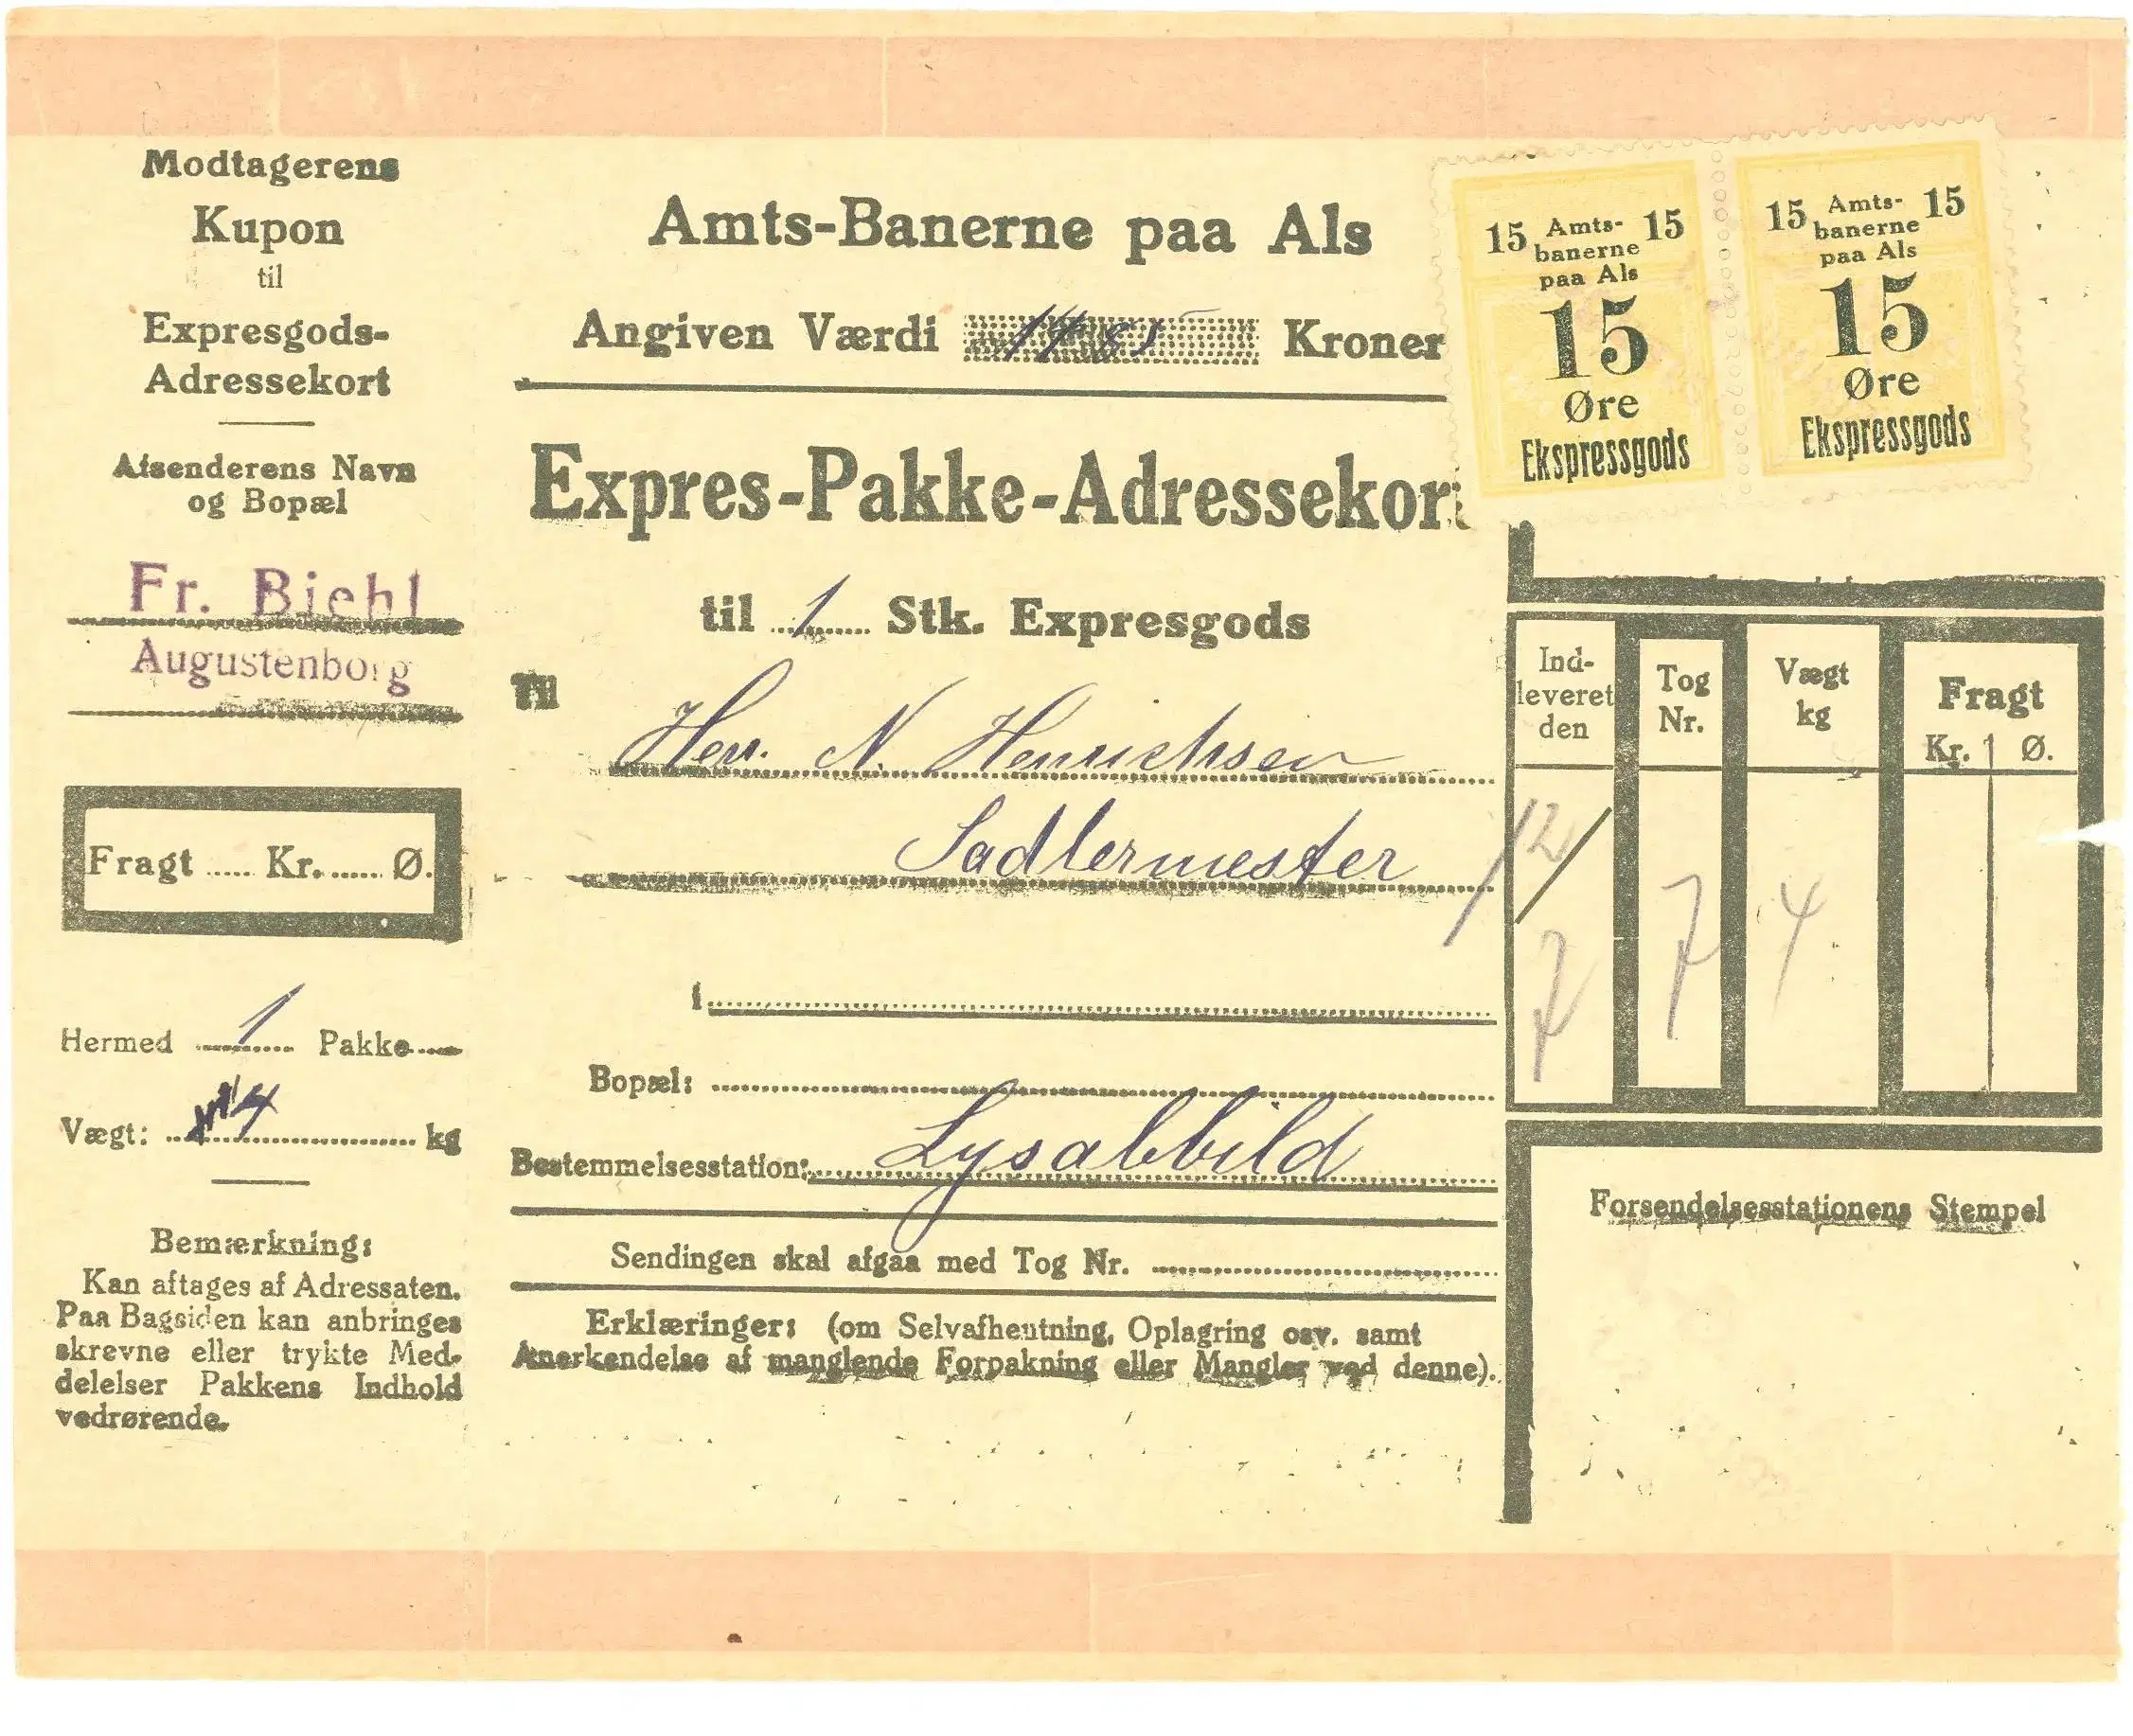 Modtagerens
Kupon
til
Expresgods-
Adressekort
Afsenderens Navn
og Bopæl
Fr. Biehl
Augustenborg
Fragt ..... Kr. ...... Ø.
Hermed 1 Pakke
Vægt: 4 kg
Bemærkning:
Kan aftages af Adressaten.
Paa Bagsiden kan anbringes
skrevne eller trykte Med-
delelser Pakkens Indhold
vedrørende.
Amts-Banerne paa Als
Angiven Værdi Kroner
Expres-Pakke-Adressekort
til 1 Stk. Expresgods
Til
Herr. N. Henrichsen
Sadlermester
i
Bopæl:
Bestemmelsesstation: Lysabbild
Sendingen skal afgaa med Tog Nr.
Erklæringer: (om Selvafhentning, Oplagring osv. samt
Anerkendelse af manglende Forpakning eller Mangler ved denne).
15 Amts- 15
banerne
paa Als
15
Øre
Ekspressgods
15 Amts- 15
banerne
paa Als
15
Øre
Ekspressgods
Ind-
leveret
den
Tog
Nr.
Vægt
kg
Fragt
Kr. Ø.
12/
7
7
4
Forsendelsesstationens Stempel